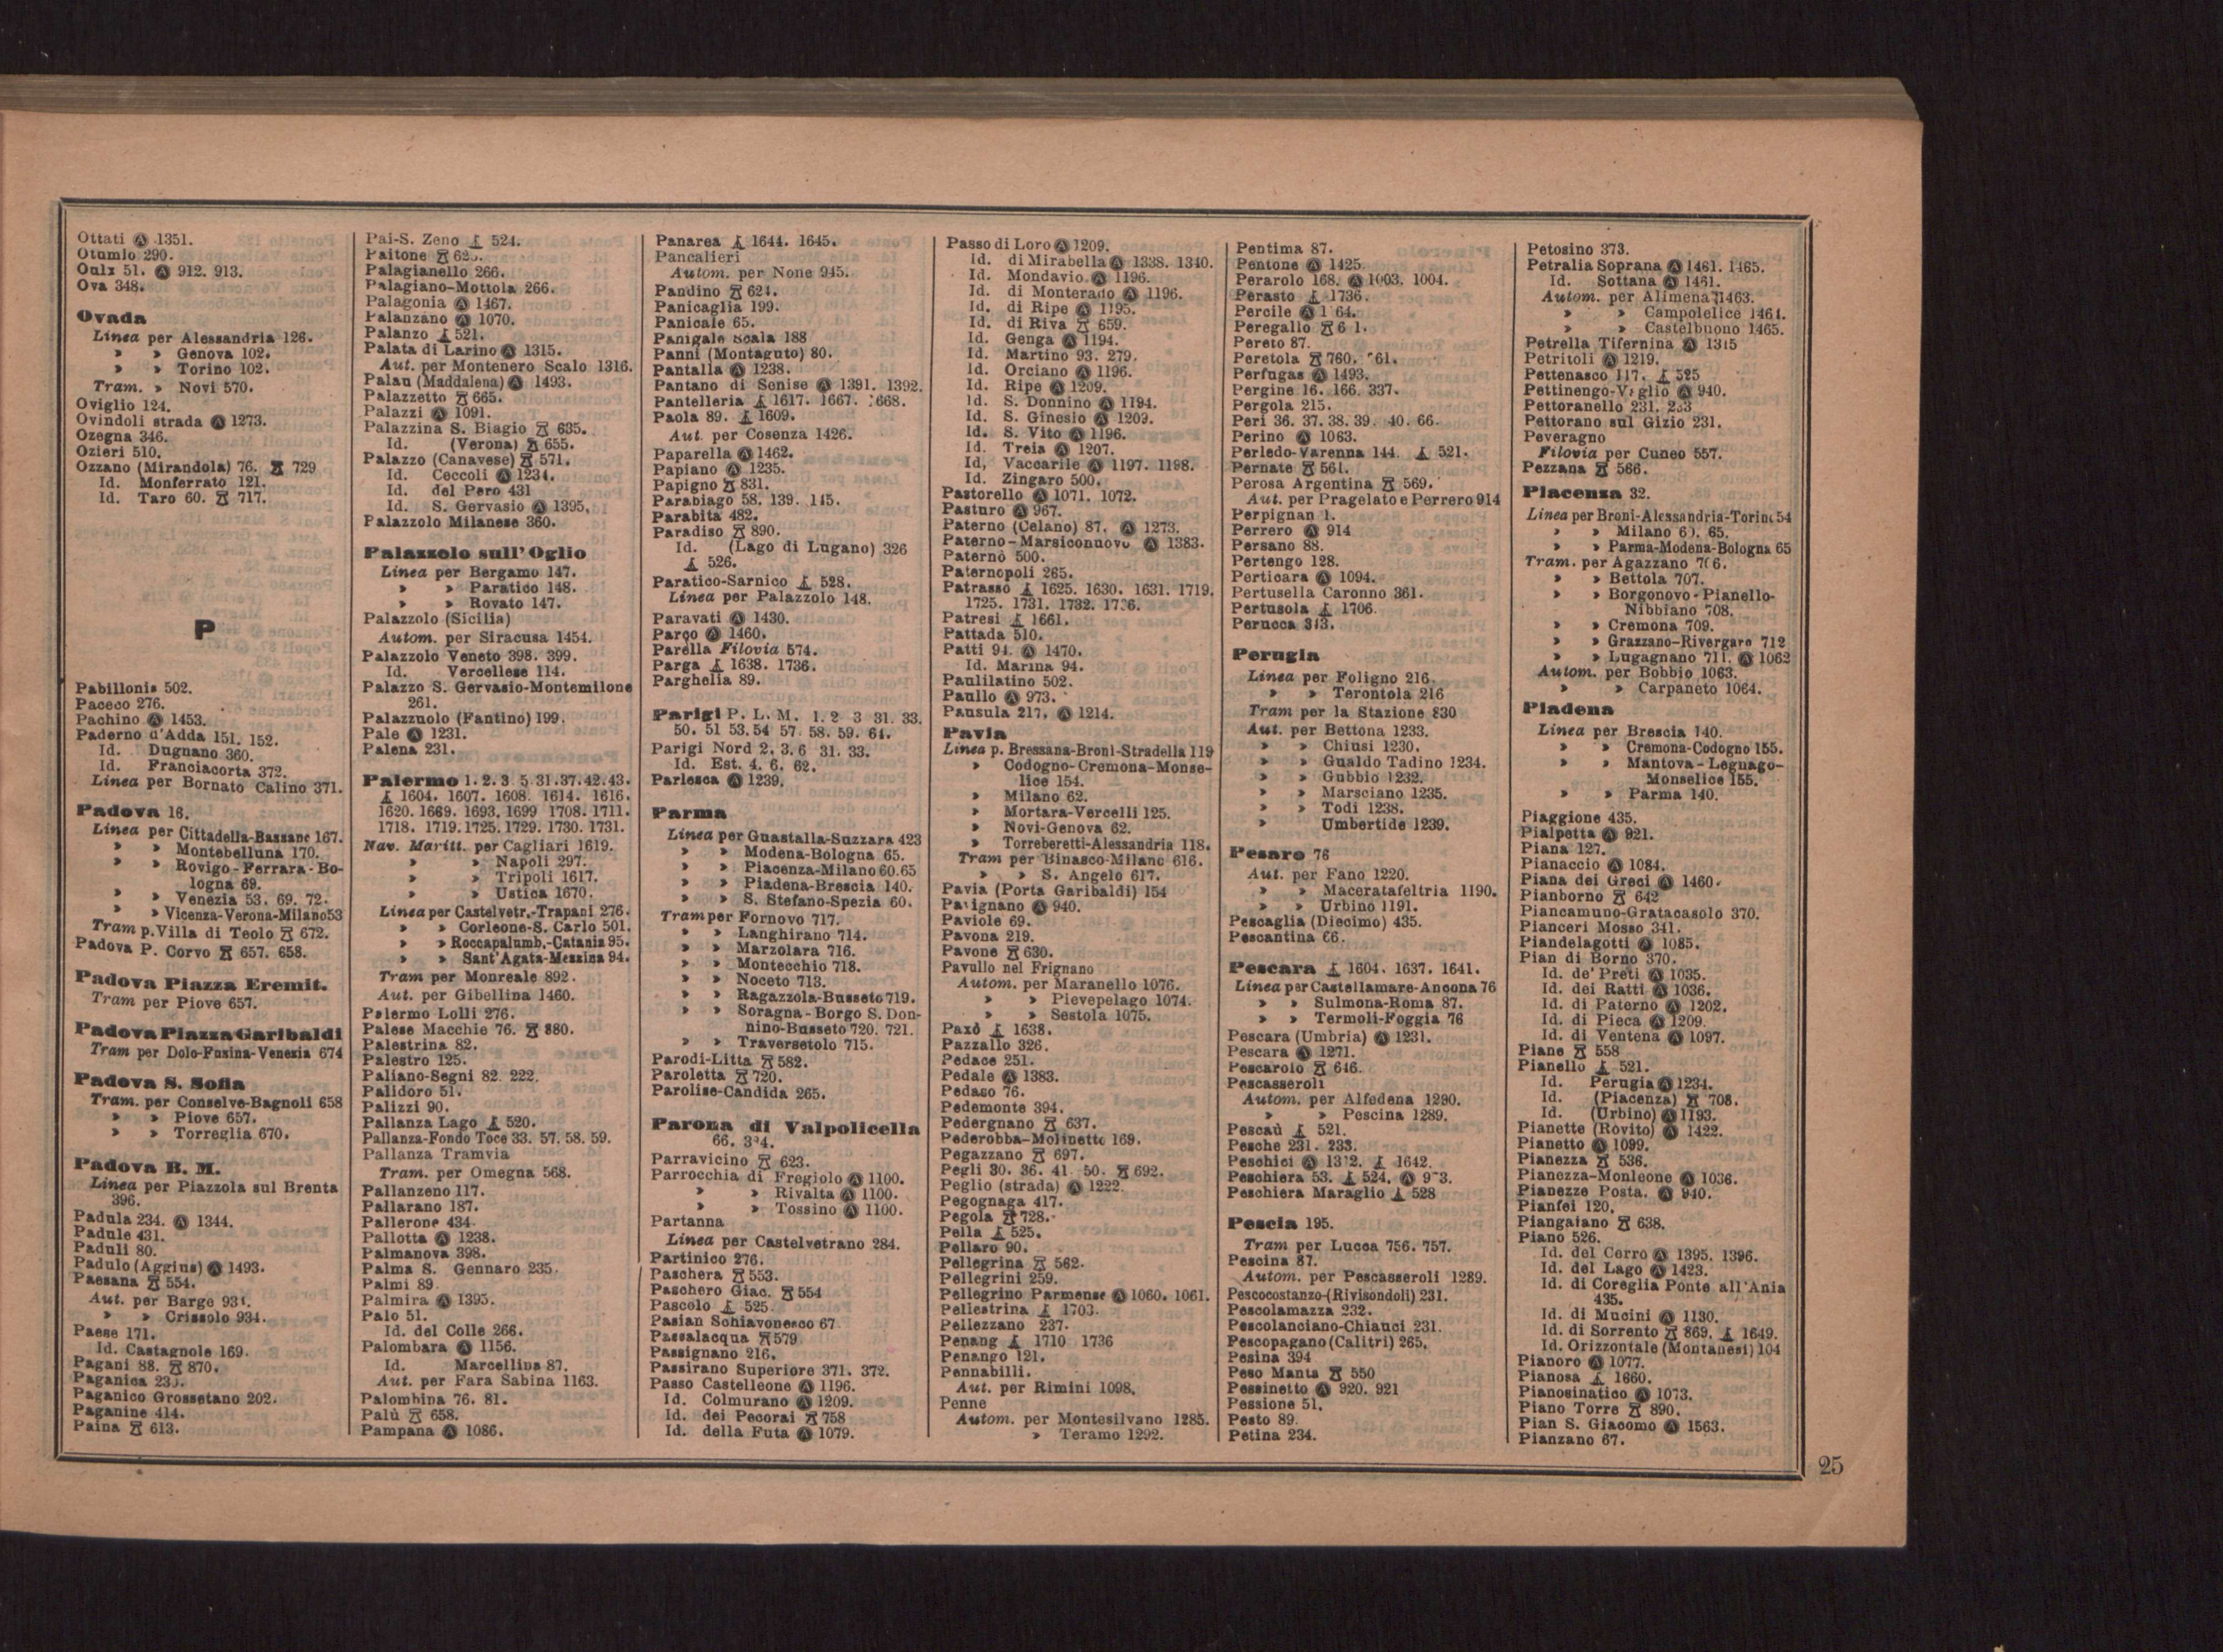 Ottati Ⓐ 1351.
Otumlo 290.
Oulx 51. Ⓐ 912. 913.
Ova 348.
Ovada
Linea per Alessandria 126.
» » Genova 102.
» » Torino 102.
Tram. » Novi 570.
Oviglio 124.
Ovindoli strada Ⓐ 1273.
Ozegna 346.
Ozieri 510.
Ozzano (Mirandola) 76. 729
Id. Monferrato 121.
Id. Taro 60. 717.
P
Pabillonis 502.
Paceco 276.
Pachino Ⓐ 1453.
Paderno d'Adda 151. 152.
Id. Dugnano 360.
Id. Franciacorta 372.
Linea per Bornato Calino 371.
Padova 16.
Linea per Cittadella-Bassano 167.
» » Montebelluna 170.
» » Rovigo-Ferrara-Bo-
logna 69.
» » Venezia 53. 69. 72.
» » Vicenza-Verona-Milano 53
Tram p. Villa di Teolo 672.
Padova P. Corvo 657. 658.
Padova Piazza Eremit.
Tram per Piove 657.
Padova Piazza Garibaldi
Tram per Dolo-Fusina-Venezia 674
Padova S. Sofia
Tram. per Conselve-Bagnoli 658
» » Piove 657.
» » Torreglia 670.
Padova B. M.
Linea per Piazzola sul Brenta
396.
Padula 234. Ⓐ 1344.
Padule 431.
Paduli 80.
Padulo (Aggius) Ⓐ 1493.
Paesana 554.
Aut. per Barge 934.
» » Crissolo 934.
Paese 171.
Id. Castagnole 169.
Pagani 88. 870.
Paganica
Paganico Grossetano 202.
Paganine 414.
Paina 613.
Pai-S. Zeno 524.
Paitone
Palagianello 266.
Palagiano-Mottola 266.
Palagonia Ⓐ 1467.
Palanzano Ⓐ 1070.
Palanzo 521.
Palata di Larino Ⓐ 1315.
Aut. per Montenero Scalo 1316.
Palau (Maddalena) Ⓐ 1493.
Palazzetto 665.
Palazzi Ⓐ 1091.
Palazzina S. Biagio 635.
Id. (Verona) 655.
Palazzo (Canavese) 571.
Id. Ceccoli Ⓐ 1234.
Id. del Pero 431
Id. S. Gervasio Ⓐ 1395.
Palazzolo Milanese 360.
Palazzolo sull' Oglio
Linea per Bergamo 147.
» » Paratico 148.
» » Rovato 147.
Palazzolo (Sicilia)
Autom. per Siracusa 1454.
Palazzolo Veneto 398. 399.
Id. Vercellese 114.
Palazzo S. Gervasio-Montemilone
261.
Palazzuolo (Fantino) 199.
Pale Ⓐ 1231.
Palena 231.
Palermo 1. 2. 3. 5. 31. 37. 42. 43.
1604. 1607. 1608. 1614. 1616.
1620. 1669. 1693. 1699 1708. 1711.
1718. 1719. 1725. 1729. 1730. 1731.
Nav. Maritt. per Cagliari 1619.
» » Napoli 297.
» » Tripoli 1617.
» » Ustica 1670.
Linea per Castelvetr.-Trapani 276.
» » Corleone-S. Carlo 501.
» » Roccapalumb.-Catania 95.
» » Sant'Agata-Messina 94.
Tram per Monreale 892.
Aut. per Gibellina 1460.
Palermo Lolli 276.
Palese Macchie 76. 880.
Palestrina 82.
Palestro 125.
Paliano-Segni 82. 222.
Palidoro 51.
Palizzi 90.
Pallanza Lago 520.
Pallanza-Fondo Toce 33. 57. 58. 59.
Pallanza Tramvia
Tram. per Omegna 568.
Pallanzeno 117.
Pallarano 187.
Pallerone 434
Pallotta Ⓐ 1238.
Palmanova 398.
Palma S. Gennaro 235.
Palmi 89
Palmira Ⓐ 1395.
Palo 51.
Id. del Colle 266.
Palombara Ⓐ 1156.
Id. Marcellina 87.
Aut. per Fara Sabina 1163.
Palombina 76. 81.
Palù 658.
Pampana Ⓐ 1086.
Panarea 1644. 1645.
Pancalieri
Autom. per None 945.
Pandino 624.
Panicaglia 199.
Panicale 65.
Panigale Scala 188
Panni (Montaguto) 80.
Pantalla Ⓐ 1238.
Pantano di Senise Ⓐ 1391. 1392.
Pantelleria 1617. 1667.
Paola 89. 1609.
Aut. per Cosenza 1426.
Paparella Ⓐ 1462.
Papiano Ⓐ 1235.
Papigno 831.
Parabiago 58. 139. 145.
Parabita 482.
Paradiso 890.
Id. (Lago di Lugano) 326
526.
Paratico-Sarnico 528.
Linea per Palazzolo 148.
Paravati Ⓐ 1430.
Parco Ⓐ 1460.
Parella Filovia 574.
Parga 1638. 1736.
Parghelia 89.
Parigi P. L. M. 1. 2 3 31. 33.
50. 51 53. 54 57. 58. 59. 61.
Parigi Nord 2. 3. 6 31. 33.
Id. Est. 4. 6. 62.
Parlesca Ⓐ 1239.
Parma
Linea per Guastalla-Suzzara 423
» » Modena-Bologna 65.
» » Piacenza-Milano 60. 65
» » Piadena-Brescia 140.
» » S. Stefano-Spezia 60.
Tram per Fornovo 717.
» » Langhirano 714.
» » Marzolara 716.
» » Montecchio 718.
» » Noceto 713.
» » Ragazzola-Busseto 719.
» » Soragna-Borgo S. Don-
nino-Busseto 720. 721.
» » Traversetolo 715.
Parodi-Litta 582.
Paroletta 720.
Parolise-Candida 265.
Parona di Valpolicella
66.
Parravicino 623.
Parrocchia di Fregiolo Ⓐ 1100.
» » Rivalta Ⓐ 1100.
» » Tossino Ⓐ 1100.
Partanna
Linea per Castelvetrano 284.
Partinico 276.
Paschera 553.
Paschero Giac. 554
Pascolo 525.
Pasian Schiavonesco 67
Passalacqua 579
Passignano 216.
Passirano Superiore 371. 372.
Passo Castelleone Ⓐ 1196.
Id. Colmurano Ⓐ 1209.
Id. dei Pecorai 758
Id. della Futa Ⓐ 1079.
Passo di Loro Ⓐ 1209.
Id. di Mirabella Ⓐ 1338. 1340.
Id. Mondavio Ⓐ 1196.
Id. di Monterado Ⓐ 1196.
Id. di Ripe Ⓐ 1195.
Id. di Riva 659.
Id. Genga Ⓐ 1194.
Id. Martino 93. 279.
Id. Orciano Ⓐ 1196.
Id. Ripe Ⓐ 1209.
Id. S. Donnino Ⓐ 1194.
Id. S. Ginesio Ⓐ 1209.
Id. S. Vito Ⓐ 1196.
Id. Treia Ⓐ 1207.
Id, Vaccarile Ⓐ 1197. 1198.
Id. Zingaro 500.
Pastorello Ⓐ 1071. 1072.
Pasturo Ⓐ 967.
Paterno (Celano) 87. Ⓐ 1273.
Paterno-Marsiconuovo Ⓐ 1383.
Paternò 500.
Paternopoli 265.
Patrasso 1625. 1630. 1631. 1719.
1725. 1731. 1732.
Patresi 1661.
Pattada 510.
Patti 94. Ⓐ 1470.
Id. Marina 94.
Paulilatino 502.
Paullo Ⓐ 973.
Pausula 217. Ⓐ 1214.
Pavia
Linea p. Bressana-Broni-Stradella 119
» Codogno-Cremona-Monse-
lice 154.
» Milano 62.
» Mortara-Vercelli 125.
» Novi-Genova 62.
» Torreberetti-Alessandria 118.
Tram per Binasco-Milano 616.
» » S. Angelo 617.
Pavia (Porta Garibaldi) 154
Pavignano Ⓐ 940.
Paviole 69.
Pavona 219.
Pavone 630.
Pavullo nel Frignano
Autom. per Maranello 1076.
» » Pievepelago 1074.
» » Sestola 1075.
Paxò 1638.
Pazzallo 326.
Pedace 251.
Pedale Ⓐ 1383.
Pedaso 76.
Pedemonte 394.
Pedergnano 637.
Pederobba-Molinetto 169.
Pegazzano 697.
Pegli 30. 36. 41 50. 692.
Peglio (strada) Ⓐ 1222
Pegognaga 417.
Pegola 728.
Pella 525.
Pellaro 90.
Pellegrina 562.
Pellegrini 259.
Pellegrino Parmense Ⓐ 1060. 1061.
Pellestrina 1703.
Pellezzano 237.
Penang 1710 1736
Penango 121.
Pennabilli.
Aut. per Rimini 1098.
Penne
Autom. per Montesilvano 1285.
» Teramo 1292.
Pentima 87.
Pentone Ⓐ 1425
Perarolo 168. Ⓐ 1003. 1004.
Perasto 1736.
Percile Ⓐ
Peregallo
Pereto 87.
Peretola 760.
Perfugas Ⓐ 1493.
Pergine 16. 166. 337.
Pergola 215.
Peri 36. 37. 38. 39. 40. 66.
Perino Ⓐ 1063.
Perledo-Varenna 144. 521.
Pernate 561.
Perosa Argentina 569.
Aut. per Pragelato e Perrero 914
Perpignan 1.
Perrero Ⓐ 914
Persano 88.
Pertengo 128.
Perticara Ⓐ 1094.
Pertusella Caronno 361.
Pertusola 1706.
Perucca 313.
Perugia
Linea per Foligno 216.
» » Terontola 216
Tram per la Stazione 830
Aut. per Bettona 1233.
» » Chiusi 1230.
» » Gualdo Tadino 1234.
» » Gubbio 1232.
» » Marsciano 1235.
» » Todi 1238.
» Umbertide 1239.
Pesaro 76
Aut. per Fano 1220.
» » Maceratafeltria 1190.
» » Urbino 1191.
Pescaglia (Diecimo) 435.
Pescantina 66.
Pescara 1604. 1637. 1641.
Linea per Castellamare-Ancona 76
» » Sulmona-Roma 87.
» » Termoli-Foggia 76
Pescara (Umbria) Ⓐ 1231.
Pescara Ⓐ 1271.
Pescarolo 646.
Pescasseroli
Autom. per Alfedena 1290.
» » Pescina 1289.
Pescaù 521.
Pesche 231. 233.
Peschici Ⓐ 1642.
Peschiera 53. 524. Ⓐ
Peschiera Maraglio 528
Pescia 195.
Tram per Lucca 756. 757.
Pescina 87.
Autom. per Pescasseroli 1289.
Pescocostanzo-(Rivisondoli) 231.
Pescolamazza 232.
Pescolanciano-Chiauci 231.
Pescopagano (Calitri) 265.
Pesina 394
Peso Manta 550
Pessinetto Ⓐ 920. 921
Pessione 51.
Pesto 89.
Petina 234.
Petosino 373.
Petralia Soprana Ⓐ 1461. 1465.
Id. Sottana Ⓐ 1461.
Autom. per Alimena 1463.
» » Campolelice 1461.
» » Castelbuono 1465.
Petrella Tifernina Ⓐ 1315
Petritoli Ⓐ 1219.
Pettenasco 117. 525
Pettinengo-Viglio Ⓐ 940.
Pettoranello 231. 233
Pettorano sul Gizio 231.
Peveragno
Filovia per Cuneo 557.
Pezzana 566.
Piacenza 32.
Linea per Broni-Alessandria-Torino 54
» » Milano 60. 65.
» » Parma-Modena-Bologna 65
Tram. per Agazzano 706.
» » Bettola 707.
» » Borgonovo-Pianello-
Nibbiano 708.
» » Cremona 709.
» » Grazzano-Rivergaro 712
» » Lugagnano 711. Ⓐ 1062
Autom. per Bobbio 1063.
» » Carpaneto 1064.
Piadena
Linea per Brescia 140.
» » Cremona-Codogno 155.
» » Mantova-Legnago-
Monselice 155.
» » Parma 140.
Piaggione 435.
Pialpetta Ⓐ 921.
Piana 127.
Pianaccio Ⓐ 1084.
Piana dei Greci Ⓐ 1460.
Pianborno 642
Piancamuno-Gratacasolo 370.
Pianceri Mosso 341.
Piandelagotti Ⓐ 1085.
Pian di Borno 370.
Id. de' Preti Ⓐ 1035.
Id. dei Ratti Ⓐ 1036.
Id. di Paterno Ⓐ 1202.
Id. di Pieca Ⓐ 1209.
Id. di Ventena Ⓐ 1097.
Piane 558
Pianello 521.
Id. Perugia Ⓐ 1234.
Id. (Piacenza) 708.
Id. (Urbino) Ⓐ 1193.
Pianette (Rovito) Ⓐ 1422.
Pianetto Ⓐ 1099.
Pianezza 536.
Pianezza-Monleone Ⓐ 1036.
Pianezze Posta. Ⓐ 940.
Pianfei 120.
Piangaiano 638.
Piano 526.
Id. del Cerro Ⓐ 1395. 1396.
Id. del Lago Ⓐ 1423.
Id. di Coreglia Ponte all'Ania
435.
Id. di Mucini Ⓐ 1130.
Id. di Sorrento 869. 1649.
Id. Orizzontale (Montanesi) 104
Pianoro Ⓐ 1077.
Pianosa 1660.
Pianosinatico Ⓐ 1073.
Piano Torre 890.
Pian S. Giacomo Ⓐ 1563.
Pianzano 67.
25